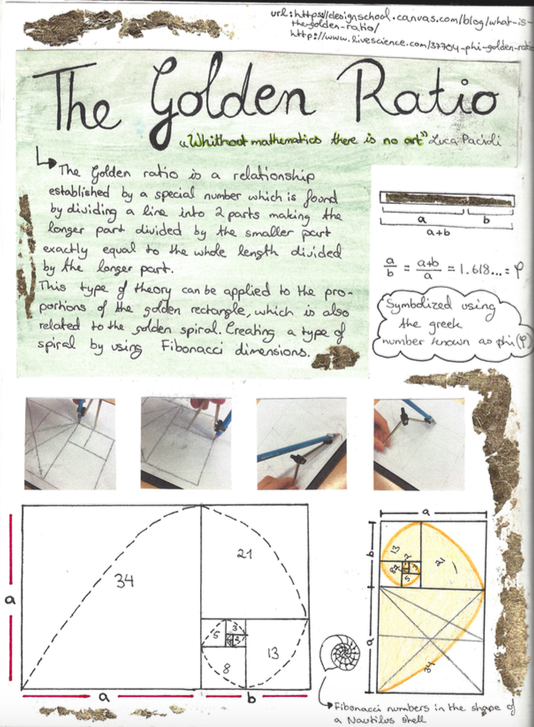 url: https://designschool.canva.com/blog/what-is-
the-golden-ratio/
http://www.livescience.com/37704-phi-golden-ratio
The Golden Ratio
"Whithout mathematics there is no art" Luca Pacioli
The Golden ratio is a relationship
established by a special number which is found
by dividing a line into 2 parts making the
longer part divided by the smaller part
exactly equal to the whole length divided
by the longer part.
This type of theory can be applied to the pro-
portions of the golden rectangle, which is also
related to the golden spiral. Creating a type of
spiral by using Fibonacci dimensions.
a b
a+b
a/b = a+b/a = 1.618... = φ
Symbolized using
the greek
number known as phi (φ)
a
34
21
5
3
8
13
a b
a
b
a
13
2
21
5
34
Fibonacci numbers in the shape of
a Nautilus shell